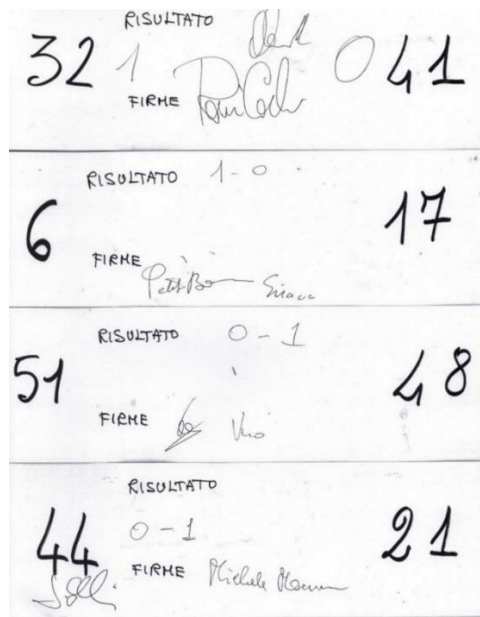 RISULTATO
32 1 0 41
FIRME
RISULTATO 1-0
6 17
FIRME
RISULTATO 0-1
51 48
FIRME
RISULTATO
0-1
44 21
FIRME Michele